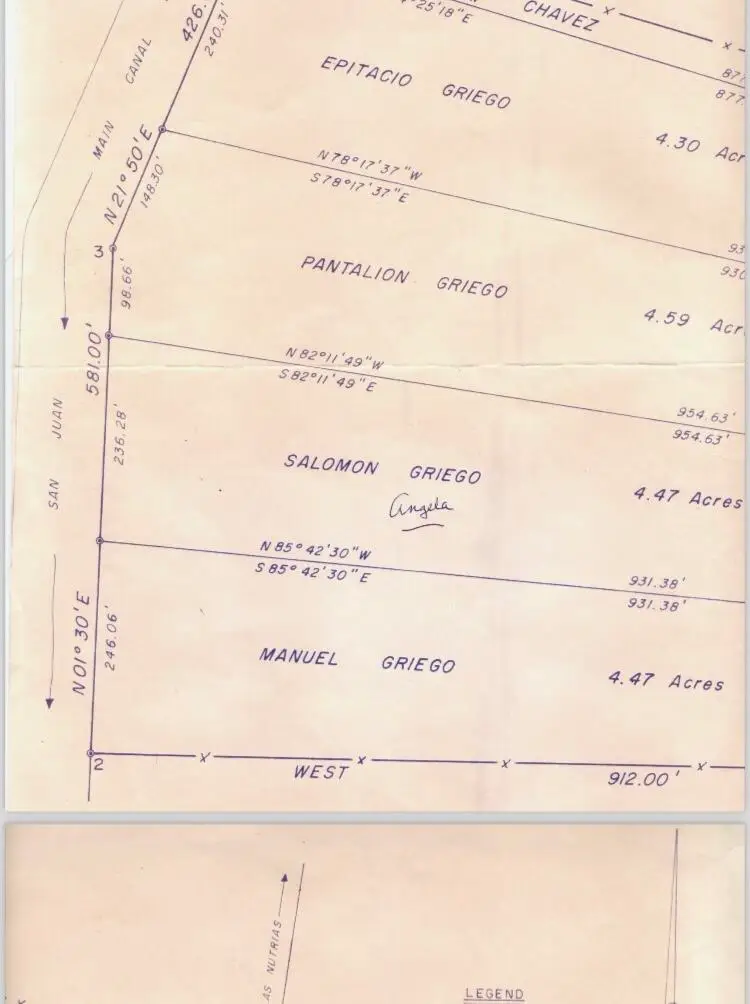 426.
240.31'
25'18"E
CHAVEZ
x
x
877
877.
EPITACIO GRIEGO
4.30 Acr
MAIN CANAL
N 21° 50' E
148.30'
N 78°17'37"W
S 78°17'37"E
93
930
3
98.66'
PANTALION GRIEGO
4.59 Acr
581.00'
N 82°11'49"W
S 82°11'49"E
954.63'
954.63'
236.28'
SAN JUAN
SALOMON GRIEGO
4.47 Acres
Angela
N 85° 42'30"W
S 85° 42'30"E
931.38'
931.38'
N 01° 30' E
246.06'
MANUEL GRIEGO
4.47 Acres
2
x x x x
WEST
912.00'
AS NUTRIAS
x
LEGEND